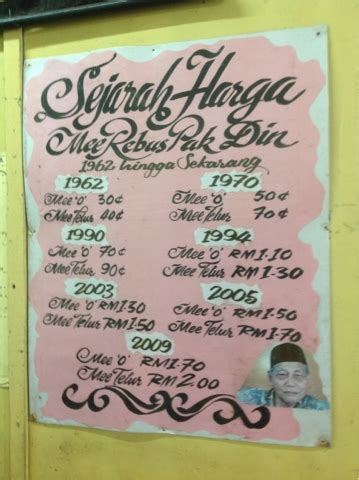 Sejarah Harga
Mee Rebus Pak Din
1962 hingga Sekarang
1962
Mee 'O' 30¢
Mee Telur 40¢
1970
Mee 'O' 50¢
Mee Telur 70¢
1990
Mee 'O' 70¢
Mee Telur 90¢
1994
Mee 'O' RM1·10
Mee Telur RM1·30
2003
Mee 'O' RM1·30
Mee Telur RM1·50
2005
Mee 'O' RM1·50
Mee Telur RM1·70
2009
Mee 'O' RM1·70
Mee Telur RM2·00